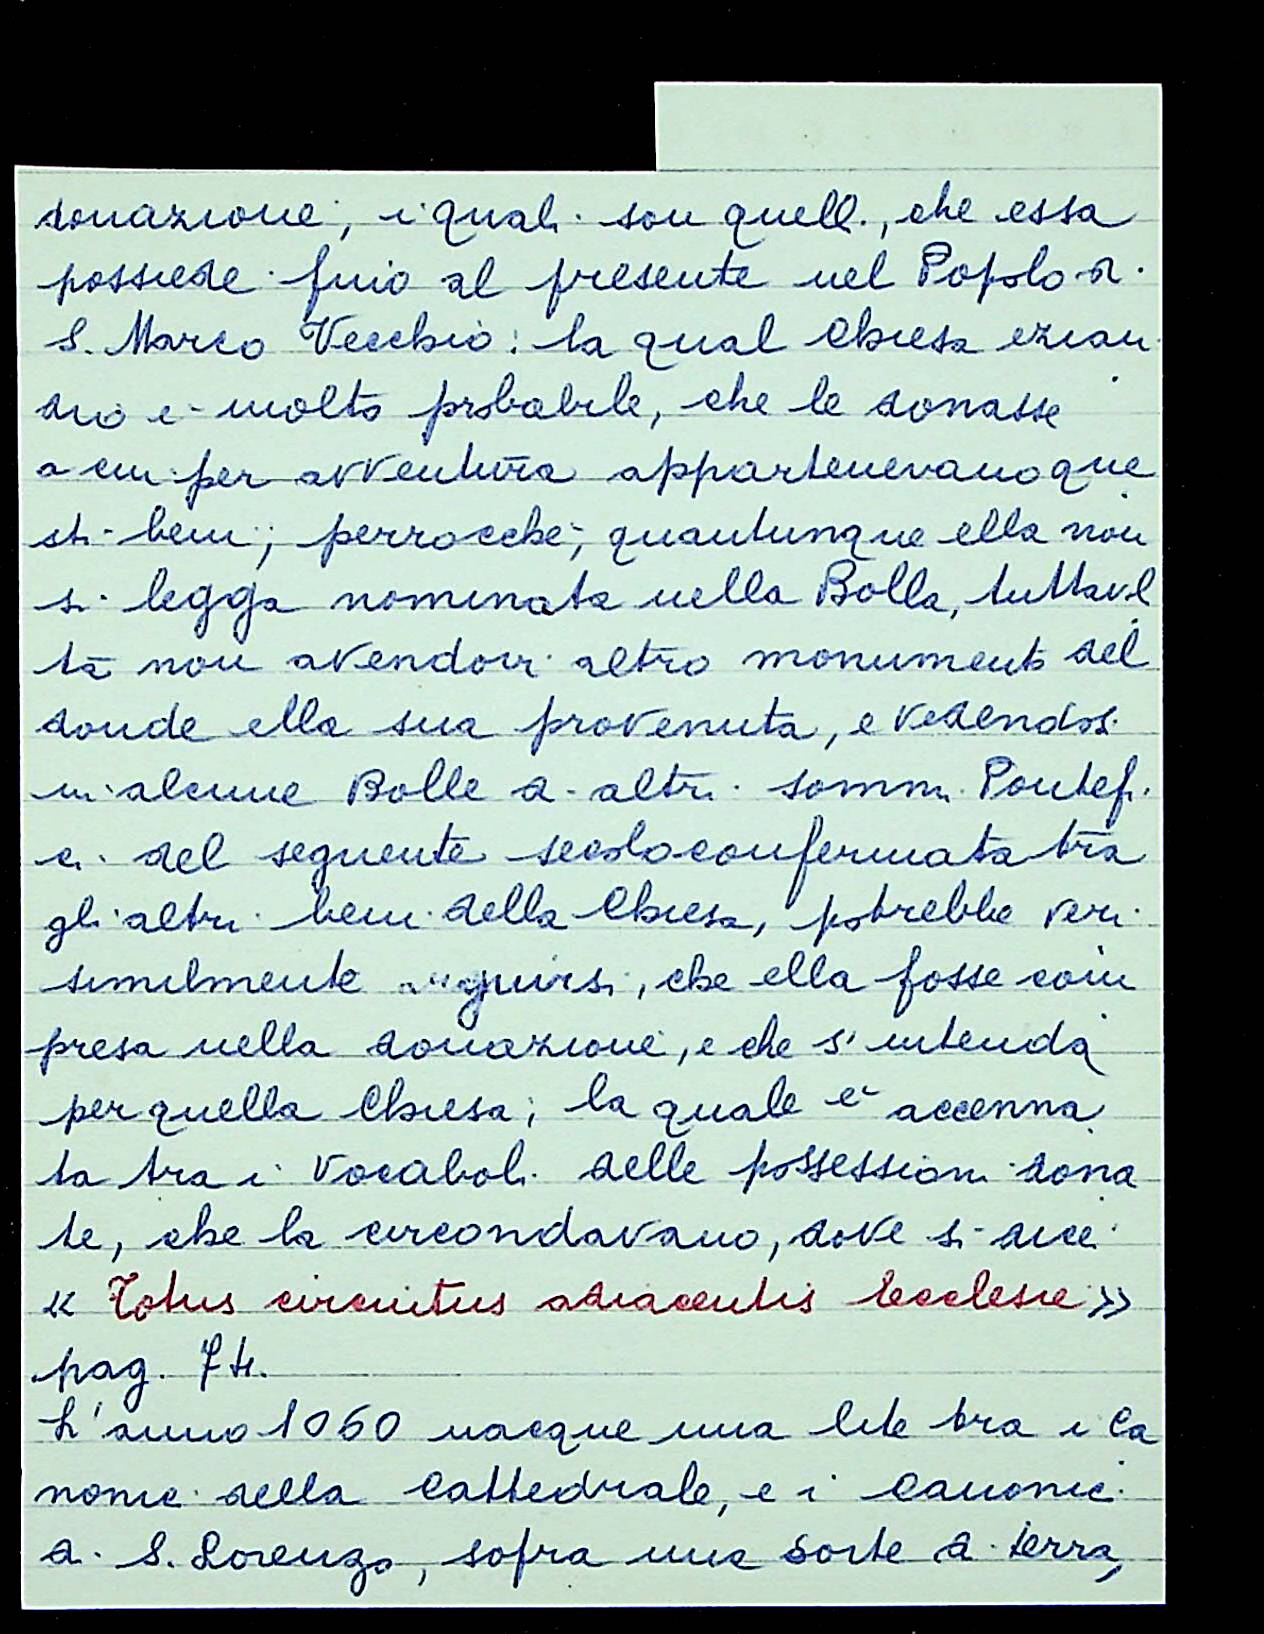 donazione, i quali son quelli, che essa
possiede fino al presente nel Popolo di
S. Marco Vecchio: la qual Chiesa ezian
dio è molto probabile, che le donasse
a cui per avventura appartenevano que
sti beni; perrocché, quantunque ella non
si legga nominata nella Bolla, tuttavol
ta non avendovi altro monumento del
donde ella sia provenuta, e vedendosi
in alcune Bolle di altri sommi Pontefi
ci del seguente secolo confermata tra
gli altri beni della Chiesa, potrebbe veri
similmente, che ella fosse com
presa nella donazione, e che s'intenda
per quella Chiesa; la quale è accenna
ta tra i Vocaboli delle possessioni dona
te, che la circondavano, dove si dice
« Totus circuitus adiacentis Ecclesie »
pag. 74.
L'anno 1060 nacque una lite tra i Ca
nonici della Cattedrale, e i Canonici
di S. Lorenzo, sopra una sorte di terra,